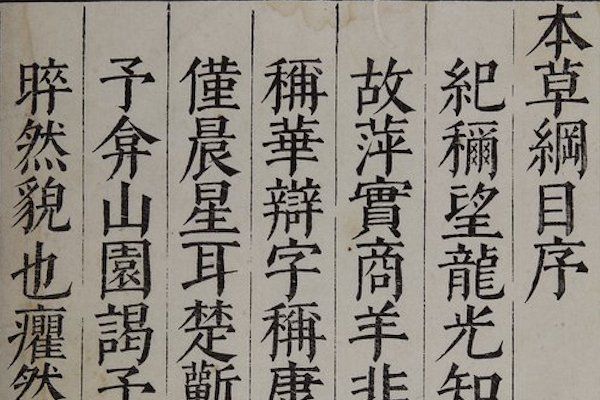 本草綱目序
紀穪望龍光知
故萍實商羊非
稱華辯字稱康
僅晨星耳楚蘄
予弇山園謁予
晬然貌也癯然